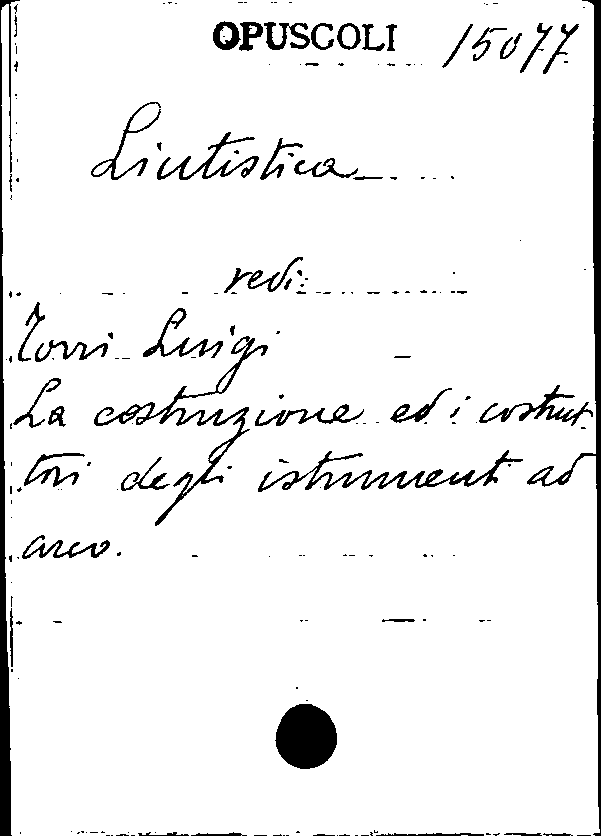 OPUSCOLI 15077
Liutistica
vedi:
Torri Luigi
La costruzione ed i costrut-
tori degli istrumenti ad
arco.